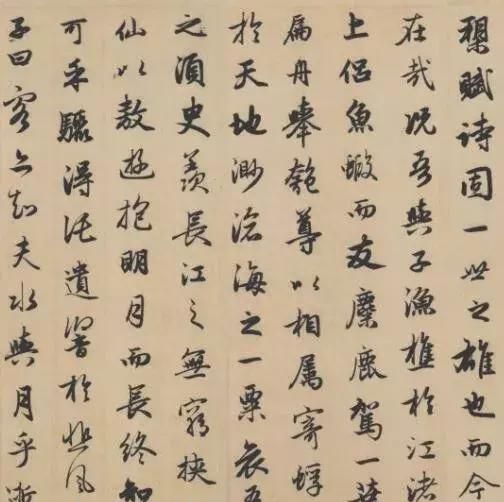 槊賦詩固一世之雄也而今
在哉况吾與子漁樵於江渚
上侣魚蝦而友麋鹿駕一葉
扁舟舉匏尊以相属寄蜉
於天地渺滄海之一粟哀吾
之須臾羨長江之無窮挾
仙以敖遊抱明月而長終知
可乎驟得託遺響於悲風
子曰客亦知夫水與月乎逝